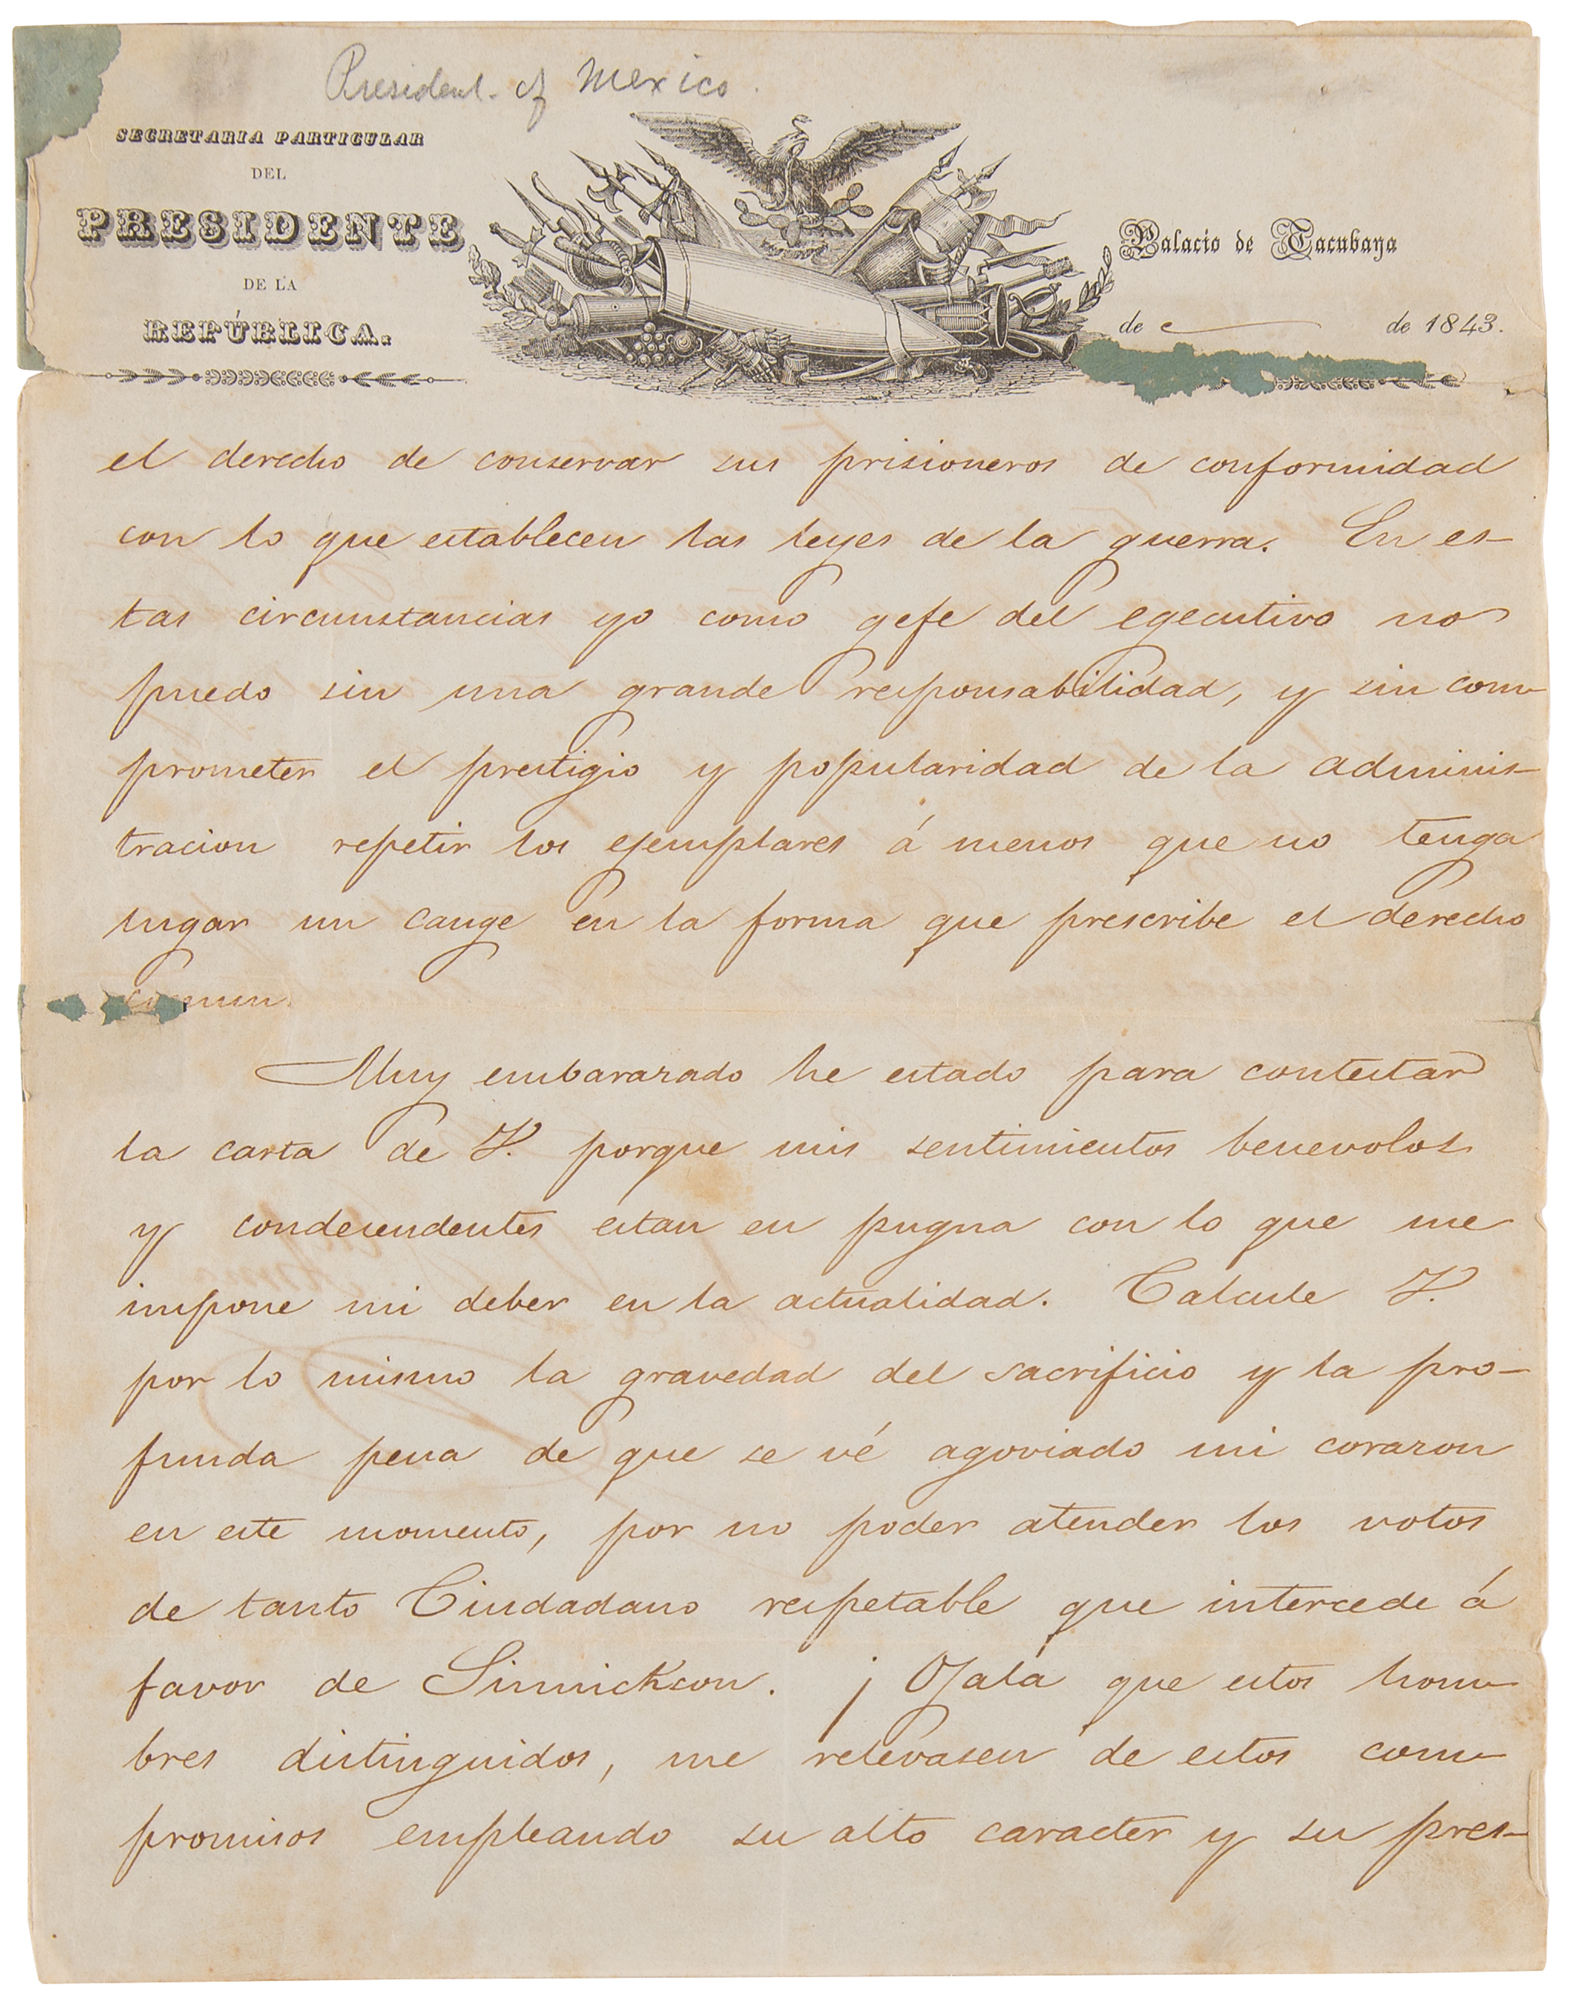 President. of Mexico.
SECRETARIA PARTICULAR
DEL
PRESIDENTE
DE LA
REPÚBLICA.
Palacio de Tacubaya
de de 1843.
el derecho de conservar sus prisioneros de conformidad
con lo que establecen las leyes de la guerra. En es-
tas circunstancias yo como gefe del egecutivo no
puedo sin una grande responsabilidad, y sin com-
prometer el prestigio y popularidad de la adminis-
tracion repetir los ejemplares á menos que no tenga
lugar un cange en la forma que prescribe el derecho
comun.
Muy embarazado he estado para contestar
la carta de V. porque mis sentimientos benevolos
y condecendentes estan en pugna con lo que me
impone mi deber en la actualidad. Calcule V.
por lo mismo la gravedad del sacrificio y la pro-
funda pena de que se vé agoviado mi corazon
en este momento, por no poder atender los votos
de tanto Ciudadano respetable que intercede á
favor de Sinnickson. ¡Ojalá que estos hom-
bres distinguidos, me relevasen de estos com-
promisos empleando su alto caracter y su pres-